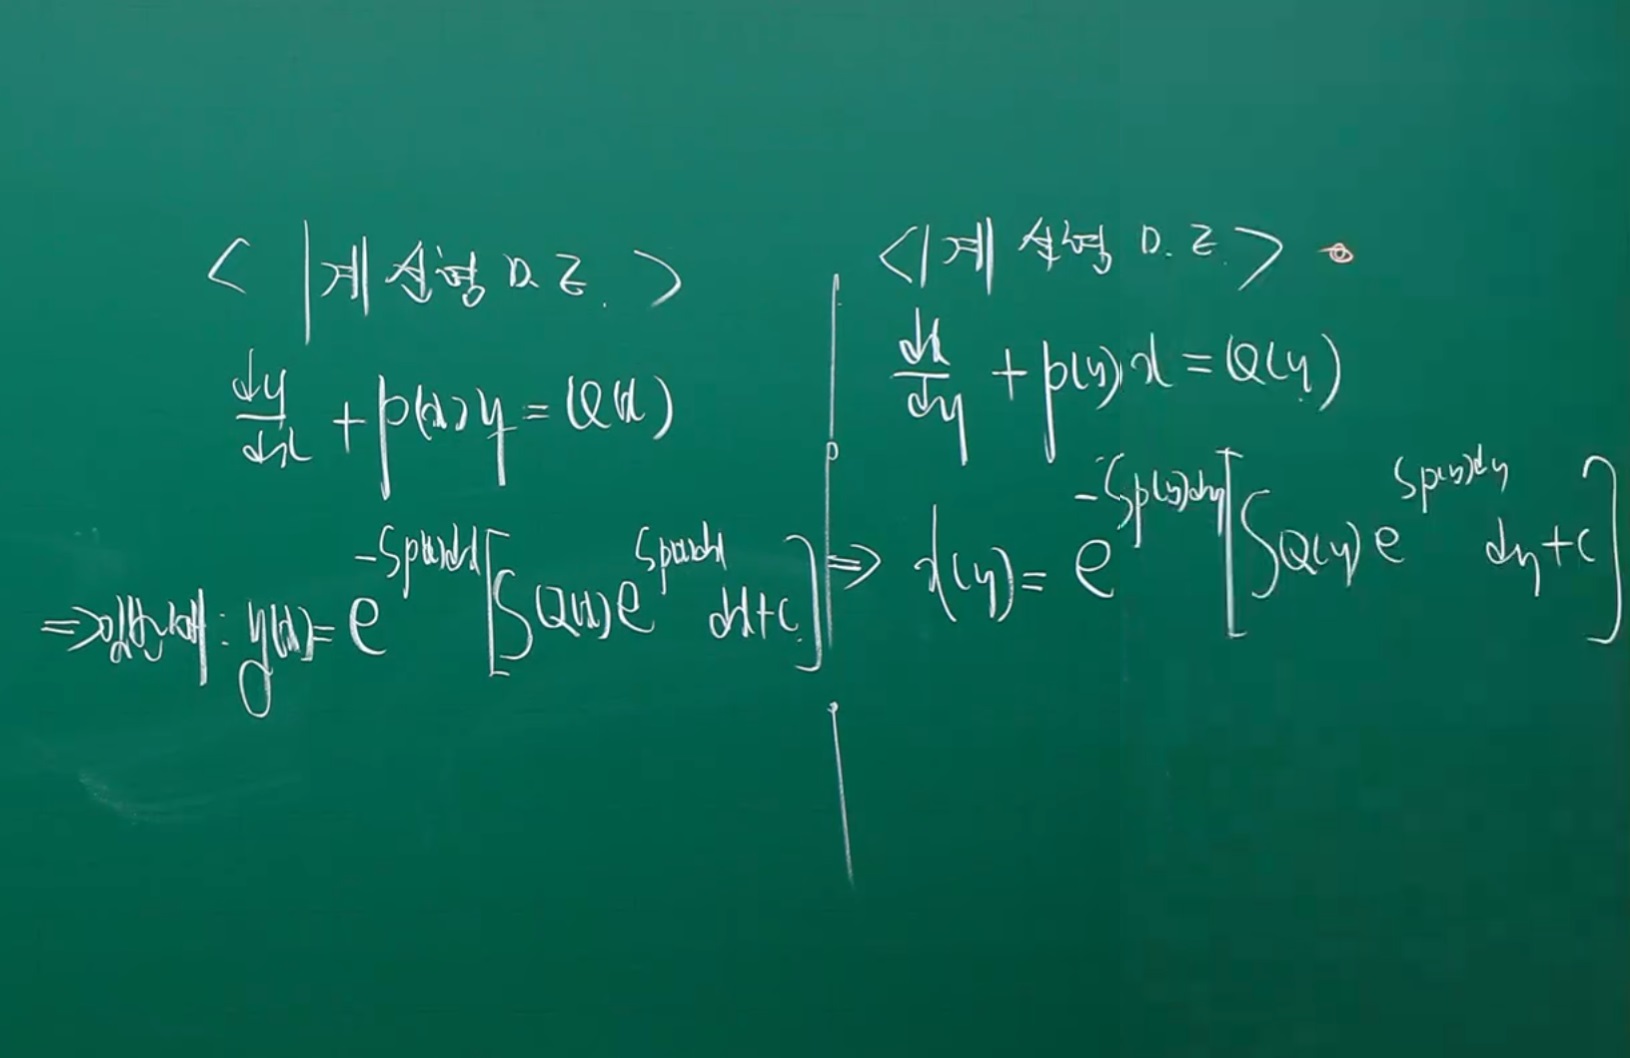 < 1계 선형 D.E. >
dy/dx + p(x)y = Q(x)
⇒ 일반해 : y(x) = e^{-∫p(x)dx} [∫Q(x)e^{∫p(x)dx} dx+c]
<1계 선형 D.E.>
dx/dy + p(y)x = Q(y)
⇒ x(y) = e^{-∫p(y)dy} [∫Q(y)e^{∫p(y)dy} dy+c]